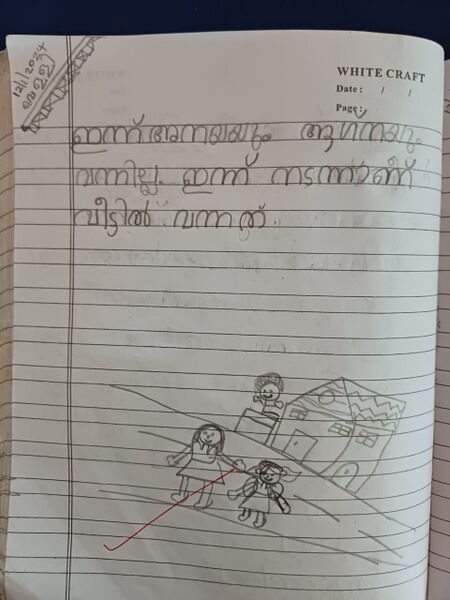 12/1/2024
വെള്ളി
WHITE CRAFT
Date : / /
Page :
ഇന്ന് അനയയും ആഗ്നയും
വന്നില്ല. ഇന്ന് നടന്നാണ്
വീട്ടിൽ വന്നത്.